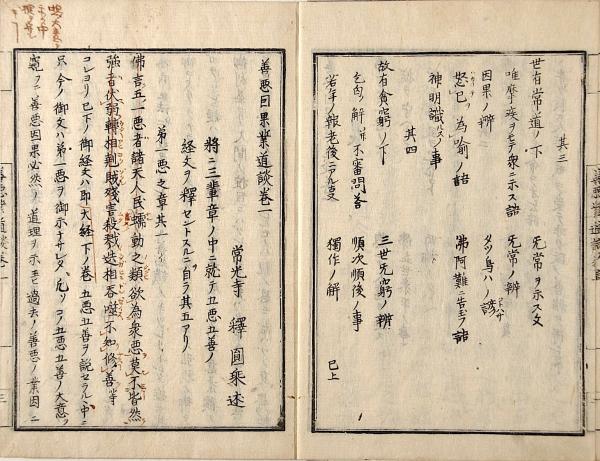 其三
世有常道ノ下
无常ヲ示ス文
唯摩疾ヲモテ衆ニ示ス話
无常ノ辨
因果ノ辨
タツ鳥ハノ諺
怒巳ヲ為喩ノ話
佛阿難ニ告玉フ話
神明識ルスノ事
其四
故有貧窮ノ下
三世无窮ノ辨
乞丐ノ解 并不審問答
順次順後ノ事
若年ノ報老後ニアル支
獨作ノ解
已上
善惡因果業道談卷一
常光寺 釋圓乘述
將ニ三輩章ノ中ニ就テ五惡五善ノ
經文ヲ釋セントスルニ自ラ其五アリ
第一惡之章其一
佛言五一惡者諸天人民蠕動之類欲為衆惡莫不皆然
強者伏弱轉相剋賊殘害殺戮迭相吞噬不知修善等
コレヨリ已下ノ御經文ハ即大經下ノ卷五惡五善ヲ說セラル丶中ニ
只今ノ御文ハ第一惡ヲ御示ナサレタ、凡ソコノ五惡五善ノ大意ヲ
窺フニ善惡因果必然ノ道理ヲ示玉ヒ過去ノ善惡ノ業因ニ